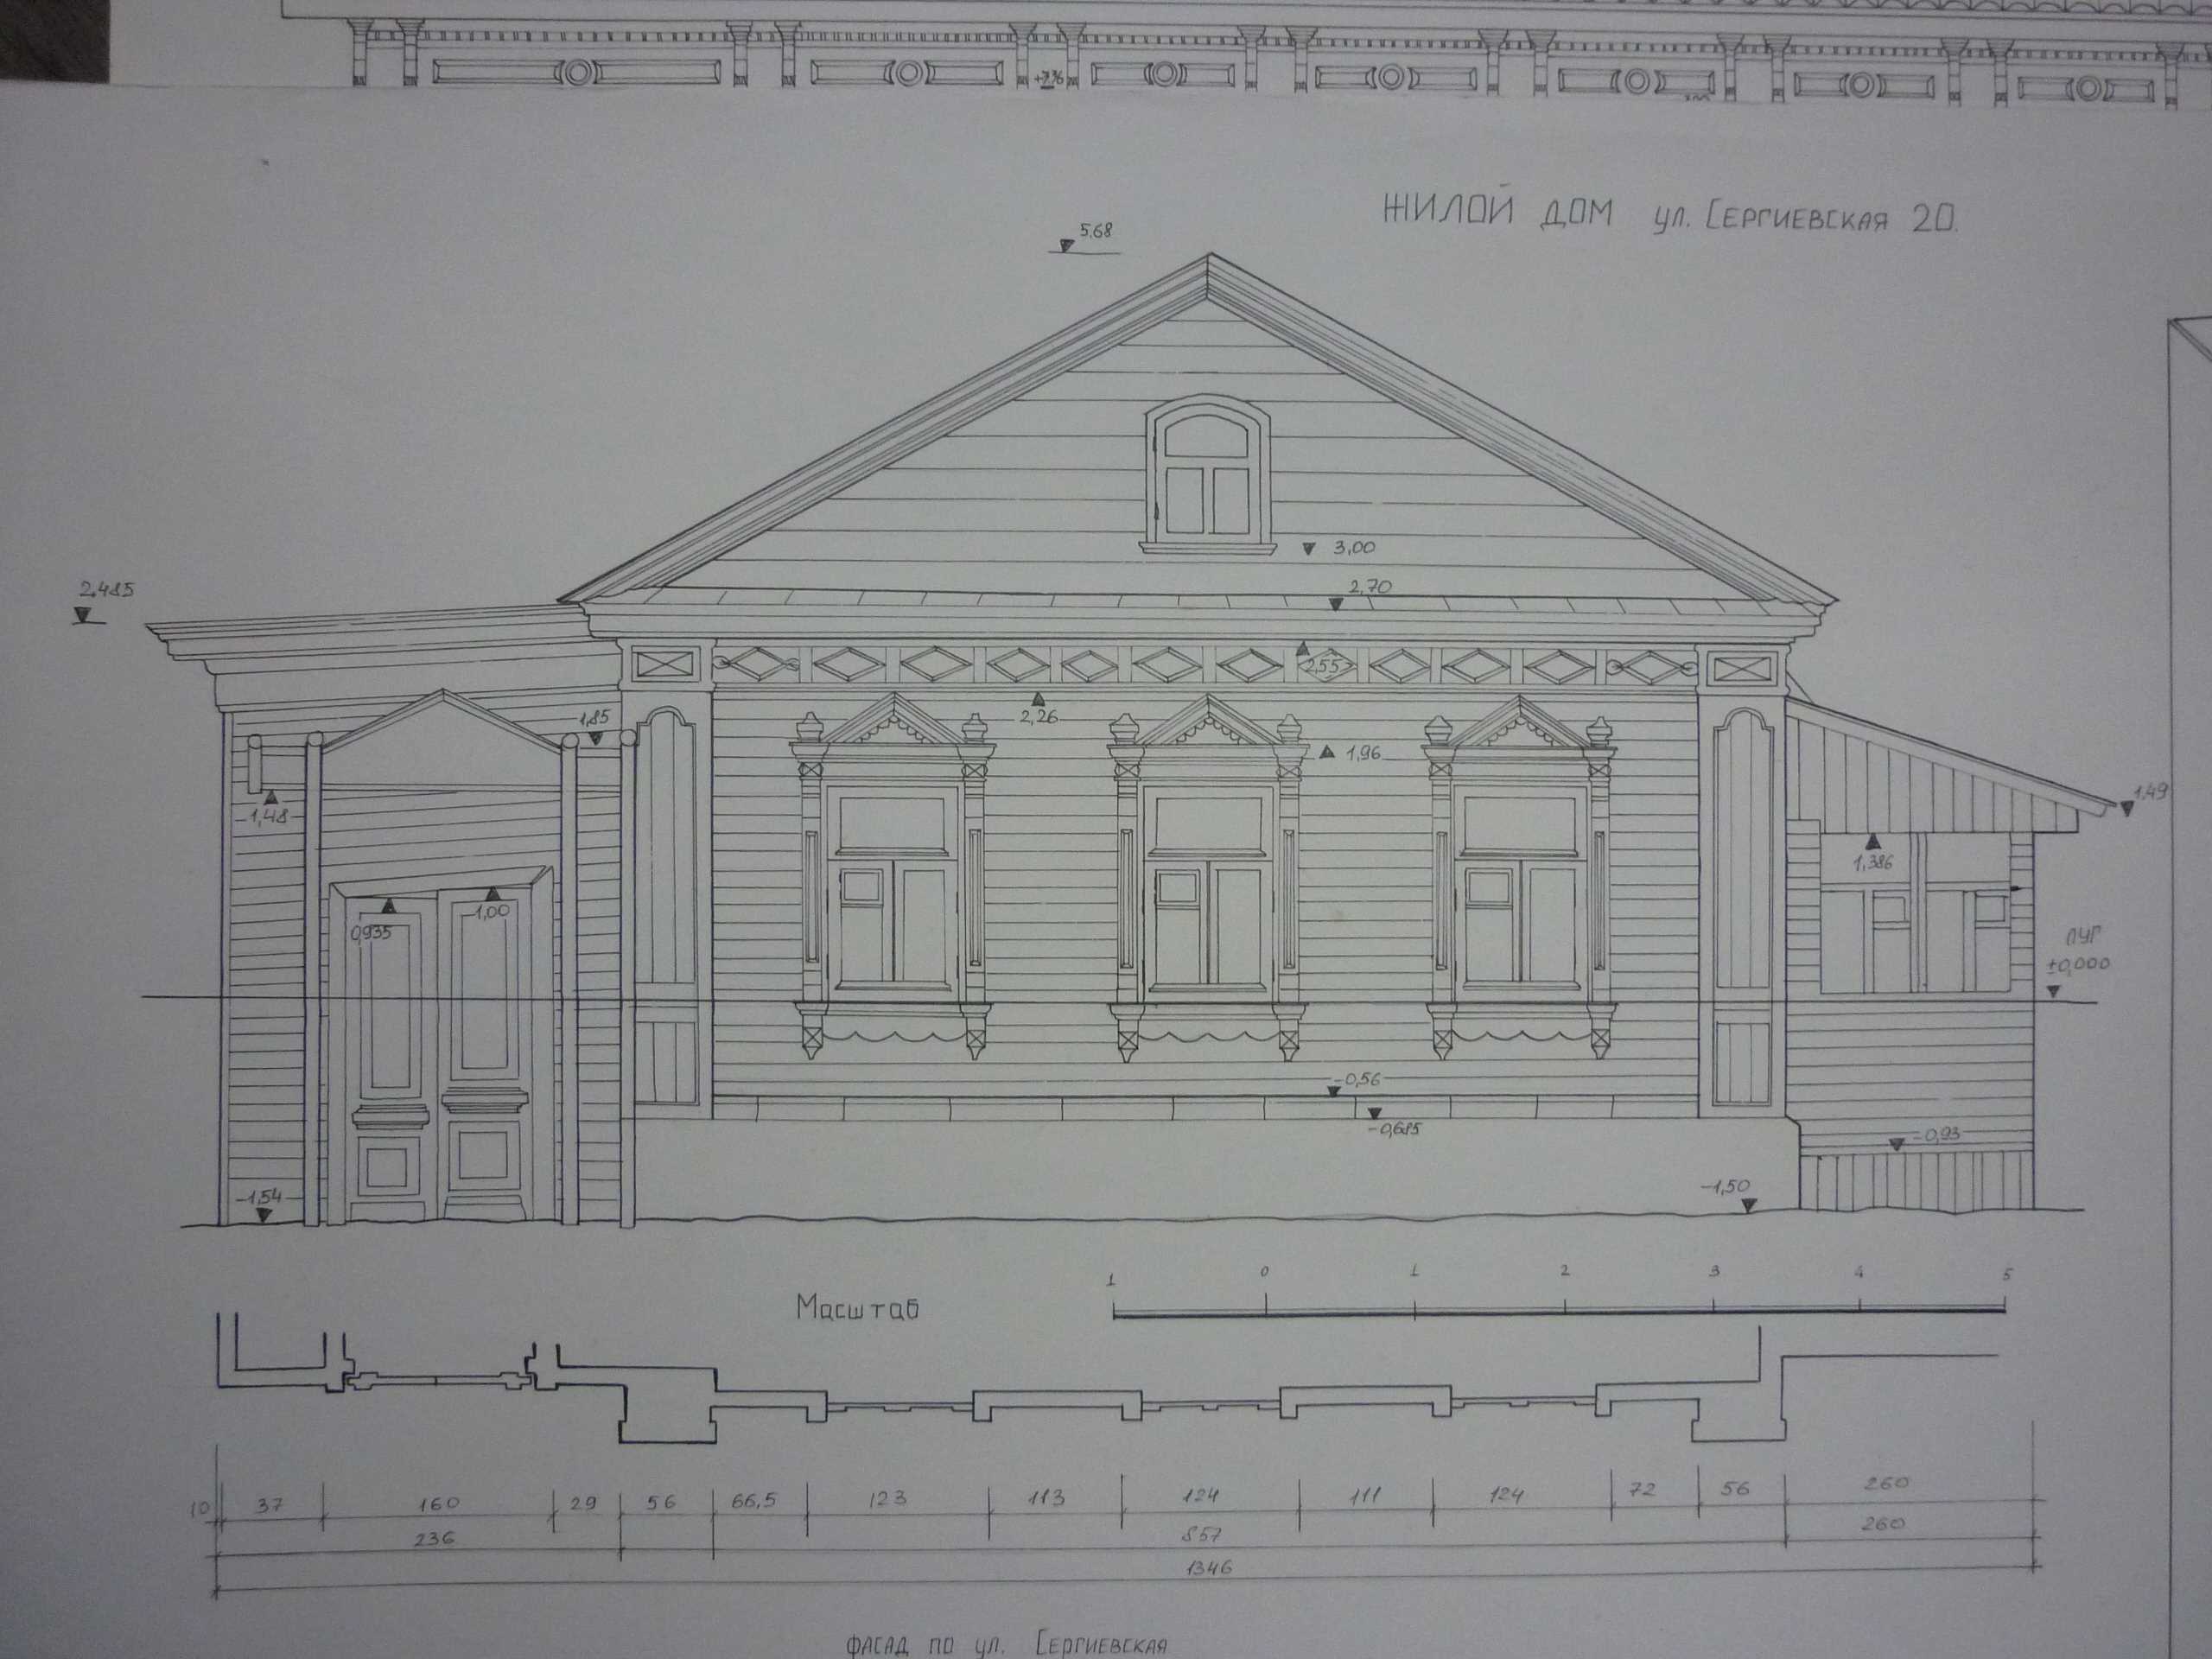 ЖИЛОЙ ДОМ ул. СЕРГИЕВСКАЯ 20.
5,68
3,00
2,485
2,70
2,55
2,26
1,85
1,96
1,49
1,48
1,386
1,00
0,935
±0,000
-0,56
-0,685
-0,93
-1,54
-1,50
Масштаб
1 0 1 2 3 4 5
10 37 160 29 56 66,5 123 113 124 111 124 72 56 260
236 857 260
1346
ФАСАД ПО УЛ. СЕРГИЕВСКАЯ